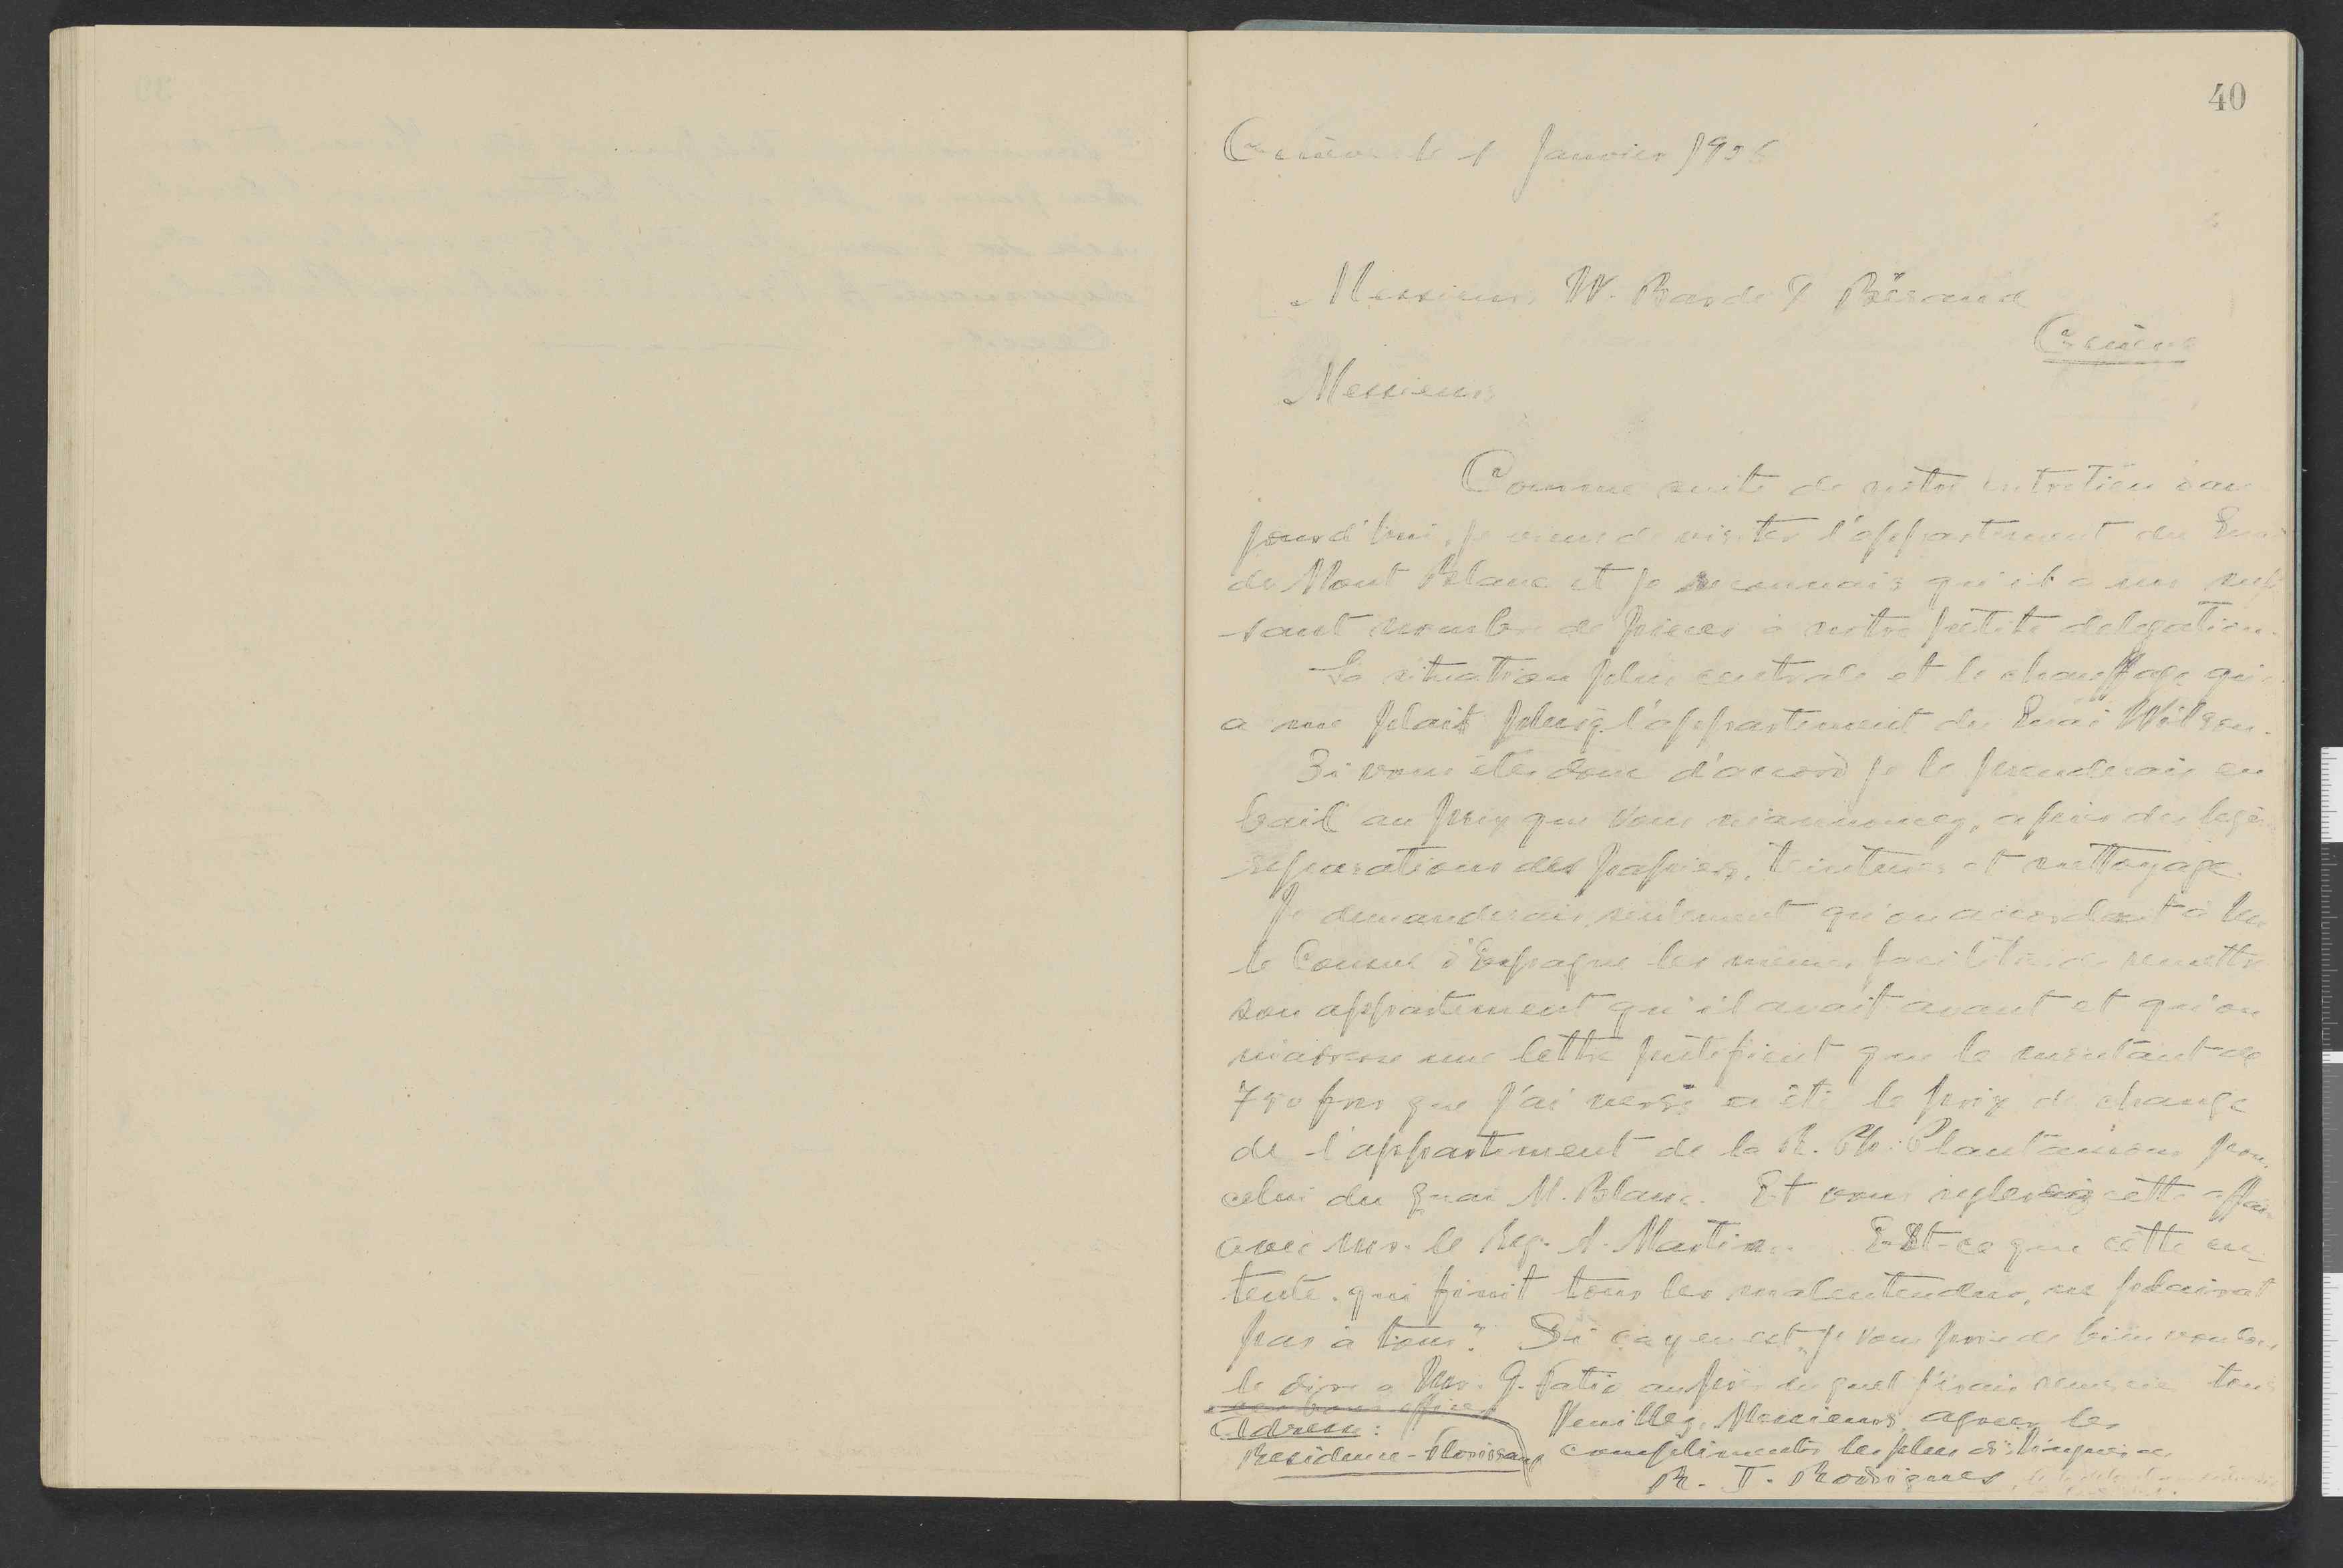 40
Genève le 1 Janvier 192
Messieurs W. Barde & Béraud
Genève
Messieurs
Comme suite de nôtre entretien d'au
jourd'hui, je viens de visiter l'appartement du Quai
du Mont Blanc et je reconnais qu'il a un suffi
-sant nombre de pièces à notre petite delegation.
La situation plus centrale et le chauffage qu'il
a me plait plus q. l'appartement du Quai Wilson.
Si vous êtes donc d'accord je le prenderais en
bail au prix que vous m'annoncez, a peine des legères
reparations des papiers, teintures et nettoyage.
Je demanderais seulement qu'on accordant à Mr
le Consul d'Espagne les mêmes facilités de remettre
son appartement qu'il avait avant et qu'on
m'adresse une lettre justifient que le montant de
750 frs que j'ai versé a été le prix de change
de l'appartement de la R. Ph. Plantamour pour
celui du Quai M. Blanc. Et vous reglerez cette affaire
avec Mr. le Reg. A. Martin. Est-ce que cette en-
tente, qui finit tous les malentendus, ne plairat
pas à tous? Si ça y en est, je vous prie de bien vouloir
le dire a Mr. G. Fatio auprès duquel j'irais tous
bons offices
Veuillez, Messieurs, agreer les
Adresse:
compliments les plus distingués
Residence-Florissant
R. T. Rodrigues